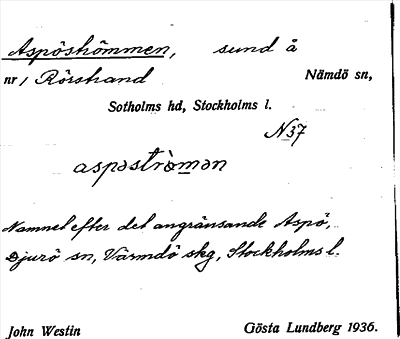 Aspöströmmen, sund å
nr / Rörstrand Nämdö sn,
Sotholms hd, Stockholms l.
N37
aspəstrò̤mən
Namnet efter det angränsande Aspö,
Djurö sn, Värmdö skg, Stockholms l.
John Westin Gösta Lundberg 1936.